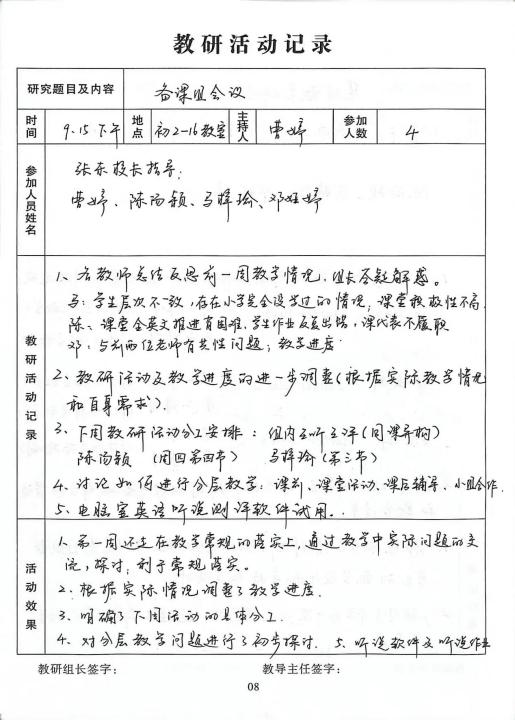 教研活动记录
研究题目及内容 备课组会议
时间 9.15下午 地点 初2-16教室 主持人 曹婷 参加人数 4
参加人员姓名
张东校长指导:
曹婷、陈尚颖、马梓瑜、邓娃婷
教研活动记录
1、各教师总结反思前一周教学情况,组长答疑解惑。
马:学生层次不一致,存在小学完全没学过的情况;课堂积极性不高
陈:课堂全英文推进有困难,学生作业反复出错,课代表不履职
邓:与前两位老师有共性问题;教学进度
2、教研活动及教学进度的进一步调整(根据实际教学情况
和自身需求).
3、下周教研活动分工安排:组内互听互评(同课异构)
陈尚颖(周四第四节) 马梓瑜(第三节)
4、讨论如何进行分层教学:课前、课堂活动、课后辅导、小组合作.
5、电脑室英语听说测评软件试用..
活动效果
1.第一周还走在教学常规的落实上,通过教学中实际问题的交
流,探讨,利于常规落实。
2、根据实际情况调整了教学进度.
3、明确了下周活动的具体分工.
4、对分层教学问题进行了初步探讨. 5、听说软件及听说作业
教研组长签字: 教导主任签字:
08